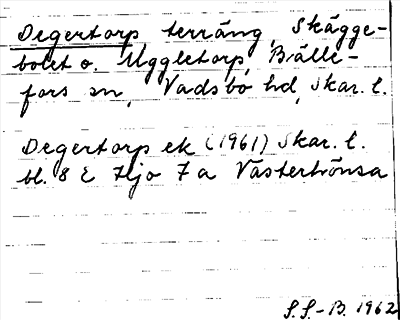 Degertorp terräng, Skägge-
bolet o. Uggletorp, Bälle-
fors sn, Vadsbo hd, Skar. l.
Degertorp ek (1961) Skar. l.
bl. 8 E Hjo 7 a Västertrönsa
S.S.-B. 1962